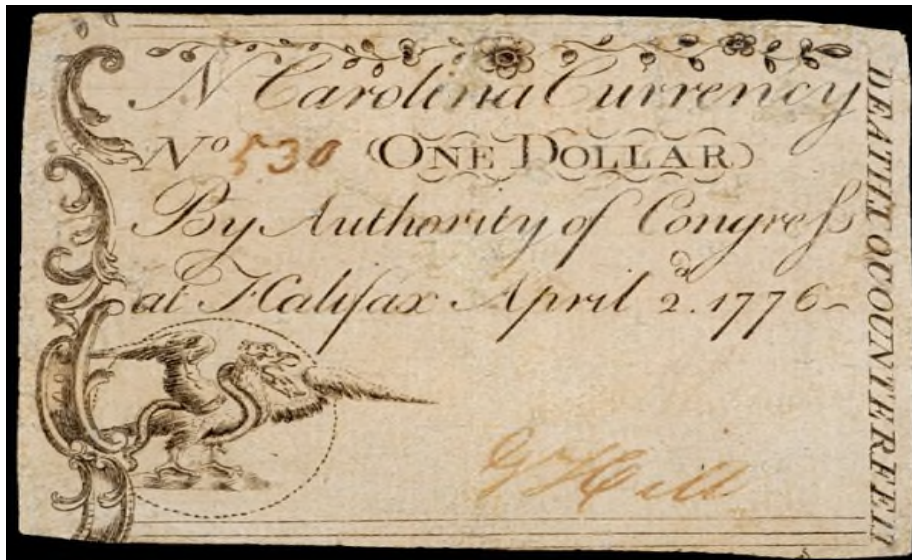 N Carolina Currency
No 530 ONE DOLLAR
By Authority of Congress
at Halifax April 2d. 1776-
G Hill
DEATH TO COUNTERFEIT